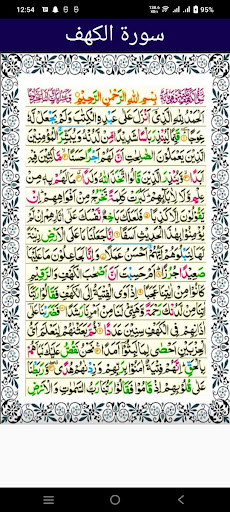 12:54
95%
سورة الكهف
بِسْمِ اللّٰهِ الرَّحْمٰنِ الرَّحِيْمِ
اَلْحَمْدُ لِلّٰهِ الَّذِيْۤ اَنْزَلَ عَلٰى عَبْدِهِ الْكِتٰبَ وَلَمْ يَجْعَلْ لَّهٗ
عِوَجًا قَيِّمًا لِّيُنْذِرَ بَاْسًا شَدِيْدًا مِّنْ لَّدُنْهُ وَيُبَشِّرَ الْمُؤْمِنِيْنَ
الَّذِيْنَ يَعْمَلُوْنَ الصّٰلِحٰتِ اَنَّ لَهُمْ اَجْرًا حَسَنًا مَّاكِثِيْنَ فِيْهِ
اَبَدًا وَّيُنْذِرَ الَّذِيْنَ قَالُوا اتَّخَذَ اللّٰهُ وَلَدًا مَا لَهُمْ بِهٖ مِنْ
عِلْمٍ وَّلَا لِاٰبَآئِهِمْ كَبُرَتْ كَلِمَةً تَخْرُجُ مِنْ اَفْوَاهِهِمْ اِنْ
يَّقُوْلُوْنَ اِلَّا كَذِبًا فَلَعَلَّكَ بَاخِعٌ نَّفْسَكَ عَلٰۤى اٰثَارِهِمْ اِنْ
لَّمْ يُؤْمِنُوْا بِهٰذَا الْحَدِيْثِ اَسَفًا اِنَّا جَعَلْنَا مَا عَلَى الْاَرْضِ زِيْنَةً
لَّهَا لِنَبْلُوَهُمْ اَيُّهُمْ اَحْسَنُ عَمَلًا وَاِنَّا لَجٰعِلُوْنَ مَا عَلَيْهَا
صَعِيْدًا جُرُزًا اَمْ حَسِبْتَ اَنَّ اَصْحٰبَ الْكَهْفِ وَالرَّقِيْمِ
كَانُوْا مِنْ اٰيٰتِنَا عَجَبًا اِذْ اَوَى الْفِتْيَةُ اِلَى الْكَهْفِ فَقَالُوْا رَبَّنَاۤ
اٰتِنَا مِنْ لَّدُنْكَ رَحْمَةً وَّهَيِّئْ لَنَا مِنْ اَمْرِنَا رَشَدًا فَضَرَبْنَا عَلٰۤى
اٰذَانِهِمْ فِى الْكَهْفِ سِنِيْنَ عَدَدًا ثُمَّ بَعَثْنٰهُمْ لِنَعْلَمَ اَيُّ
الْحِزْبَيْنِ اَحْصٰى لِمَا لَبِثُوْۤا اَمَدًا نَحْنُ نَقُصُّ عَلَيْكَ نَبَاَهُمْ
بِالْحَقِّ اِنَّهُمْ فِتْيَةٌ اٰمَنُوْا بِرَبِّهِمْ وَزِدْنٰهُمْ هُدًى وَّرَبَطْنَا
عَلٰى قُلُوْبِهِمْ اِذْ قَامُوْا فَقَالُوْا رَبُّنَا رَبُّ السَّمٰوٰتِ وَالْاَرْضِ